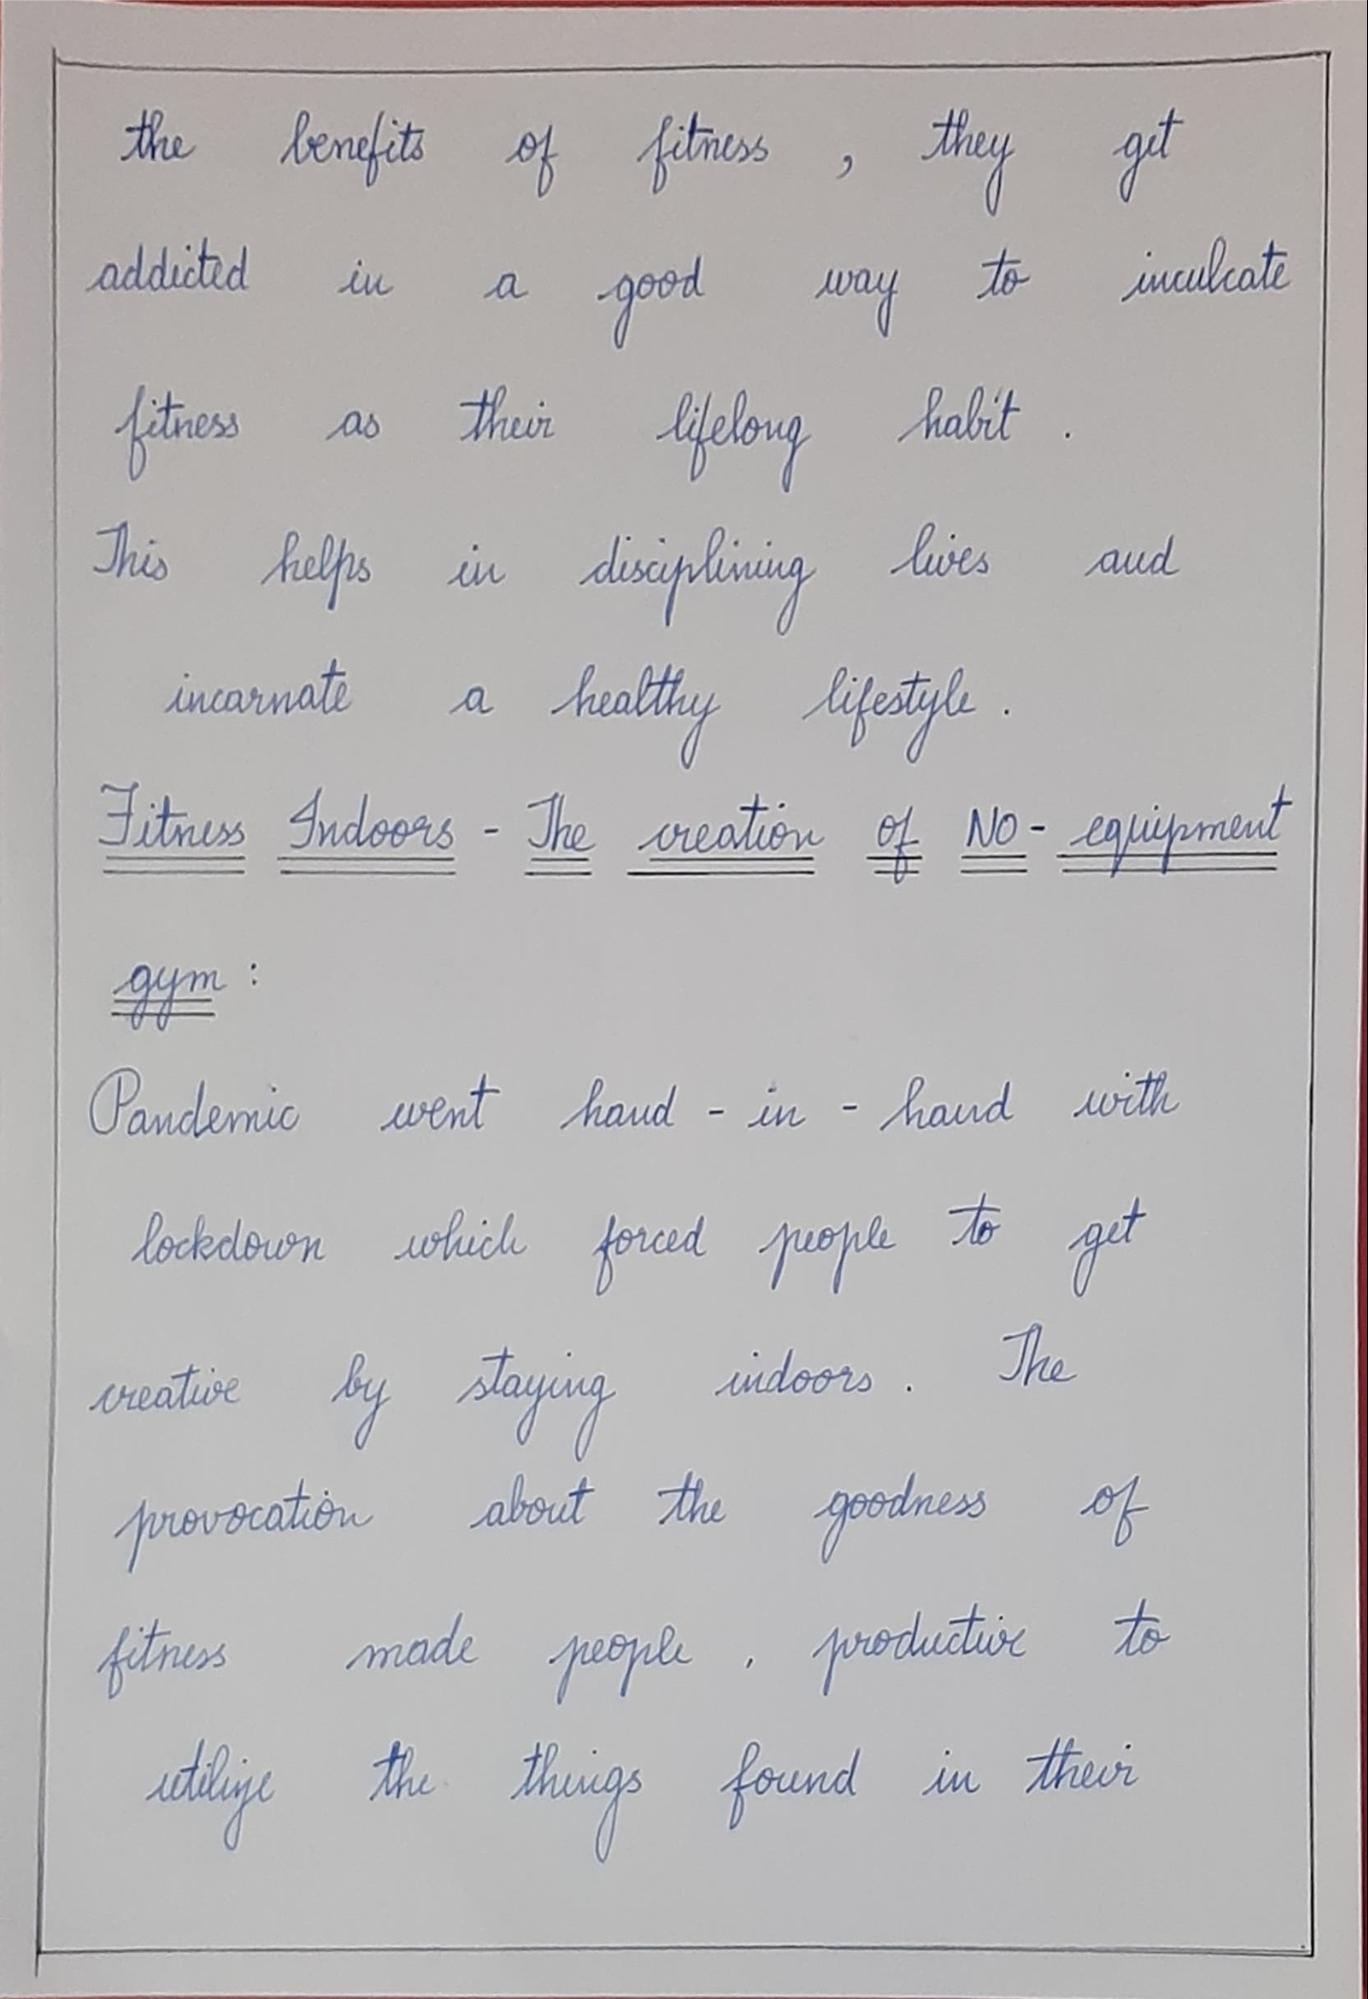 the benefits of fitness , they get
addicted in a good way to inculcate
fitness as their lifelong habit .
This helps in disciplining lives and
incarnate a healthy lifestyle .
Fitness Indoors - The creation of NO - equipment
gym :
Pandemic went hand - in - hand with
lockdown which forced people to get
creative by staying indoors . The
provocation about the goodness of
fitness made people , productive to
utilize the things found in their